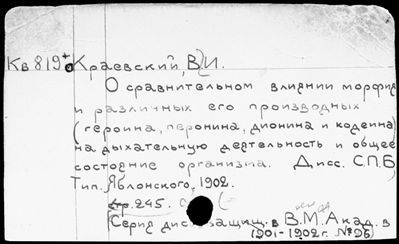 Кв 819 Краевский, В. И.
О сравнительном влиянии морфия
и различных его производных
(героина, перонина, дионина и кодеина)
на дыхательную деятельность и общее
состояние организма. Дисс. С.П.Б
Тип. Яблонского, 1902.
стр. 245.
(Серия дисс. защищ. в В.М.Акад. в
1901-1902 г. № 96)